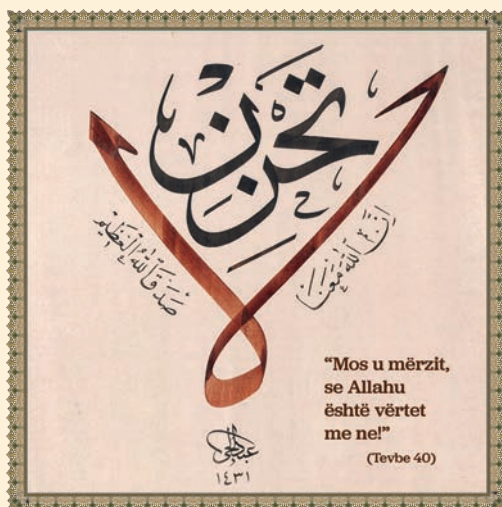 لا تحزن
إن الله معنا
صدق الله العظيم
“Mos u mërzit,
se Allahu
është vërtet
me ne!”
(Tevbe 40)
١٤٣١